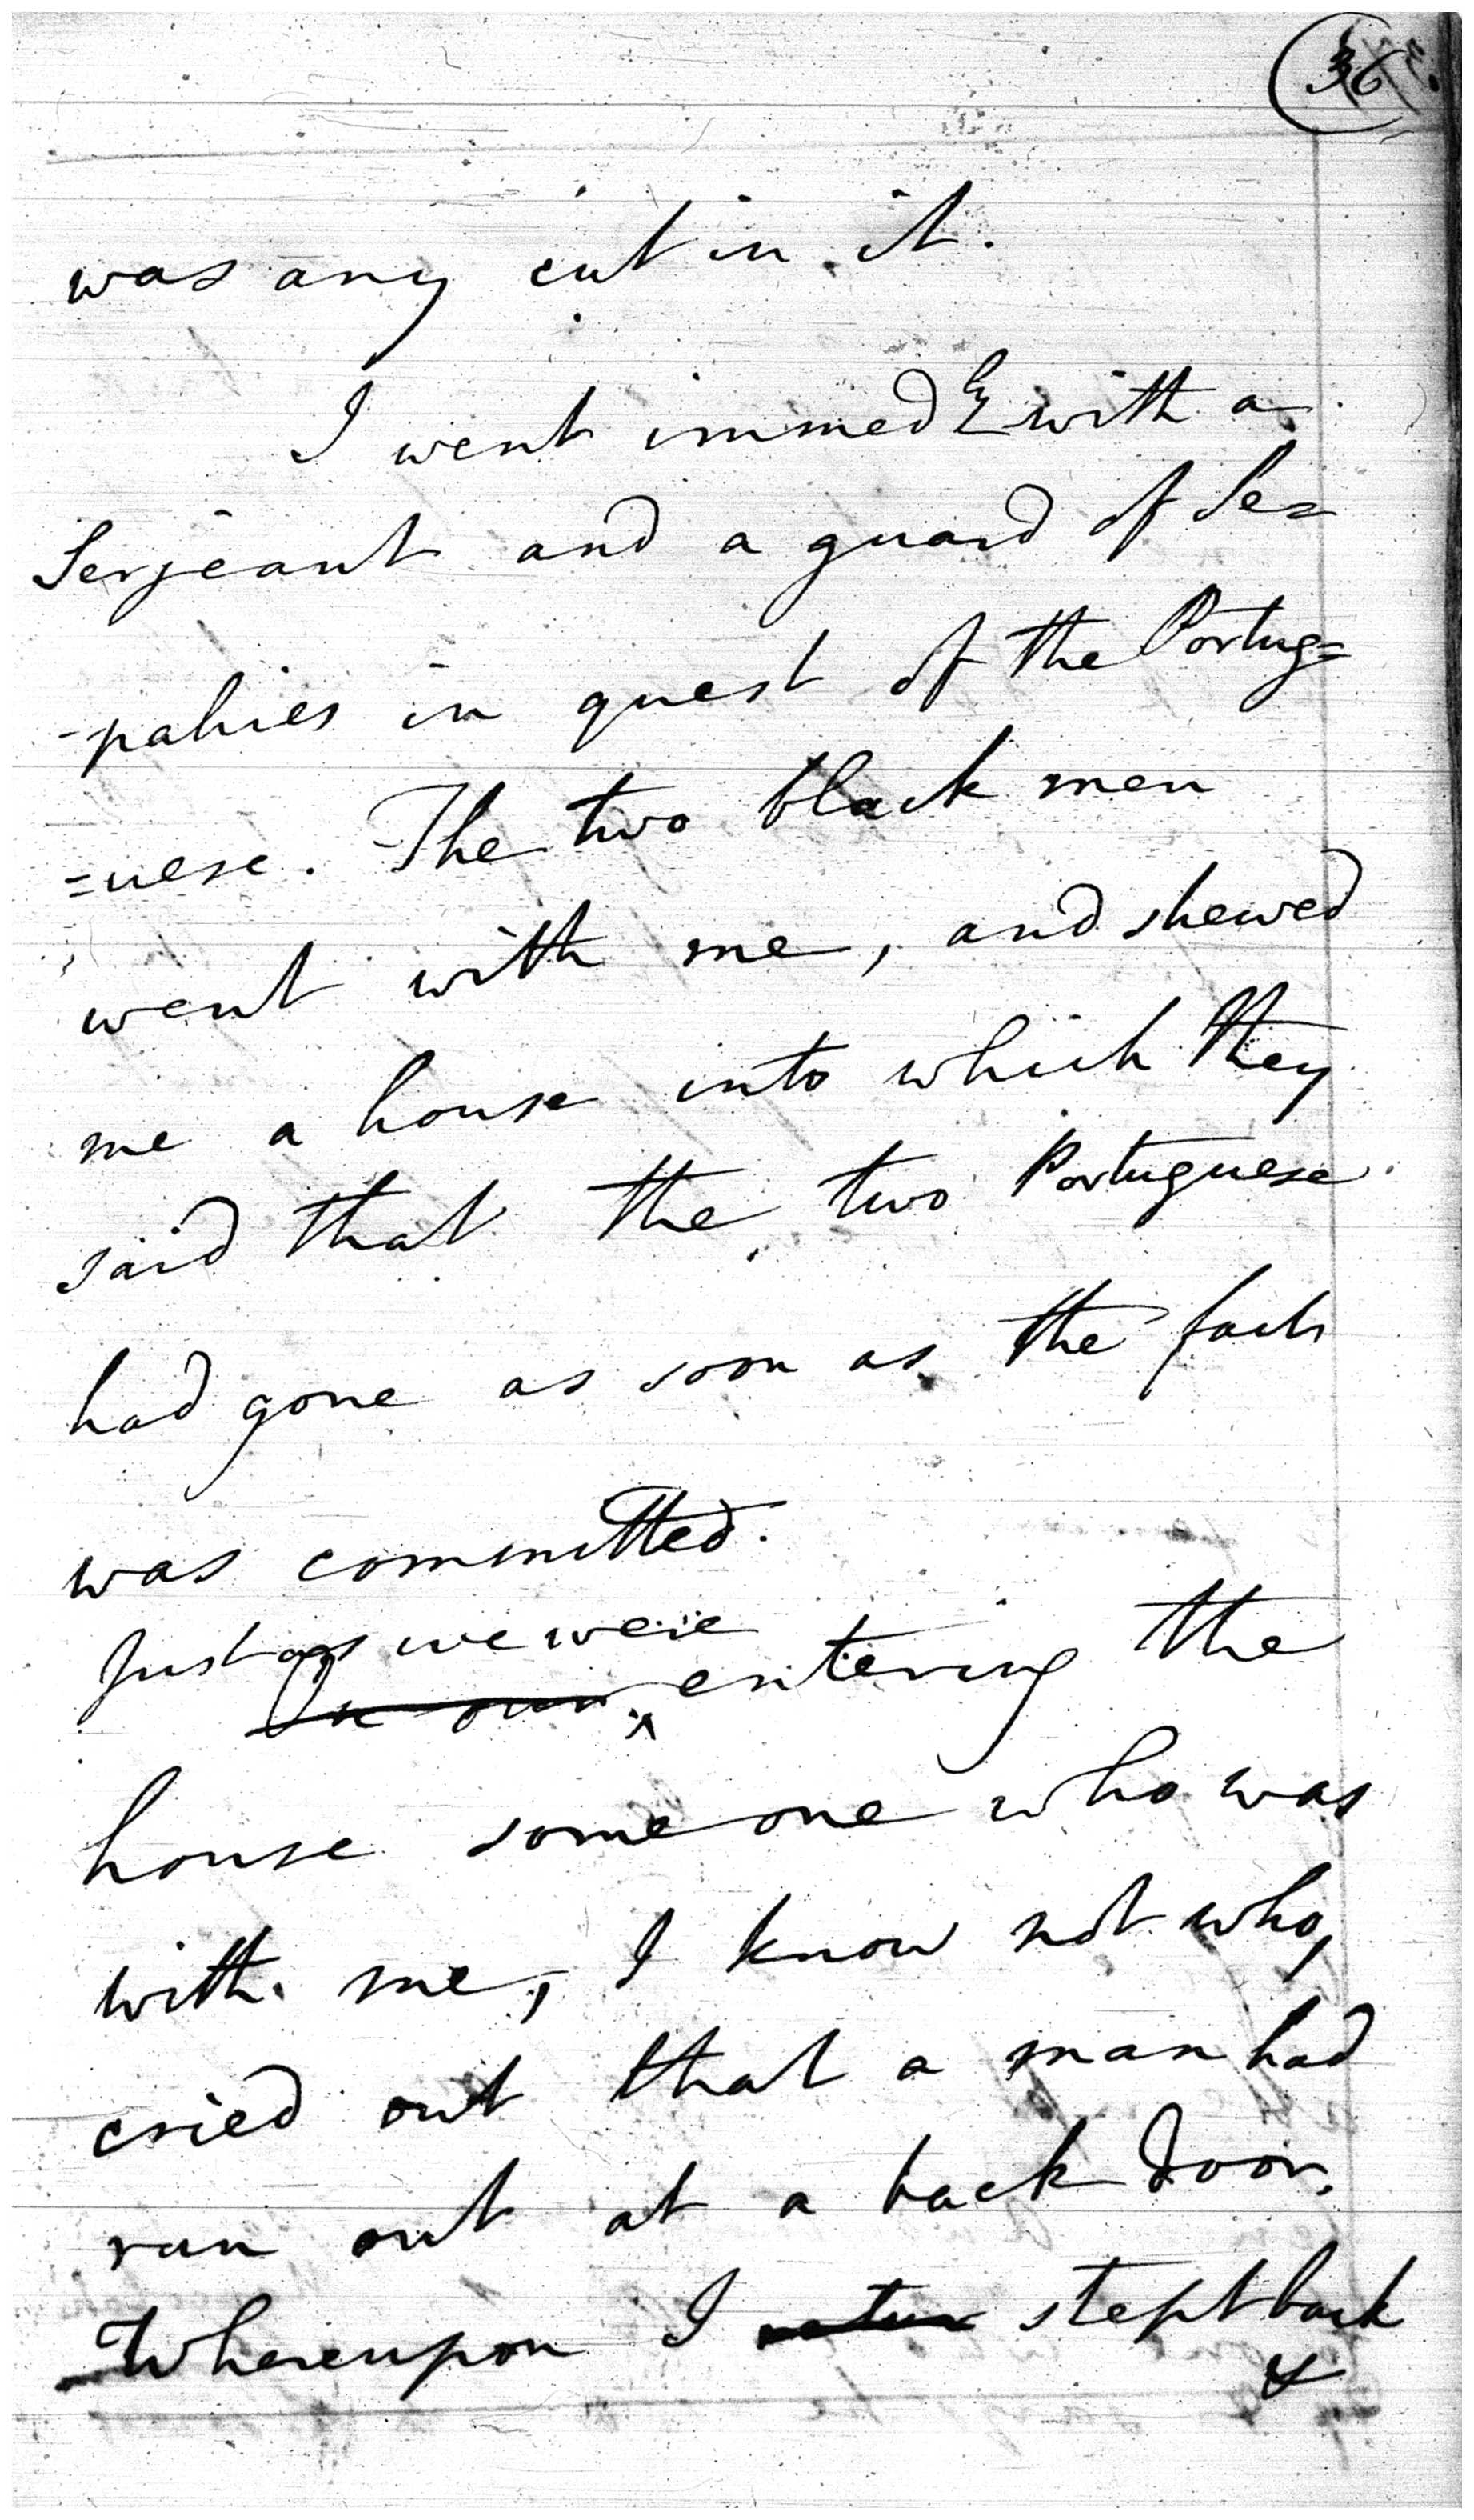 36
was any cut in it.
I went immedly with a
Serjeant and a guard of Se=
-pahies in quest of the Portug=
=uese. The two black men
went with me, and shewed
me a house into which they
said that the two Portuguese
had gone as soon as the fact
was committed.
Just as we were
In our entering the
house some one who was
with me, I know not who,
cried out that a man had
run out at a back door.
Whereupon I stept back
&